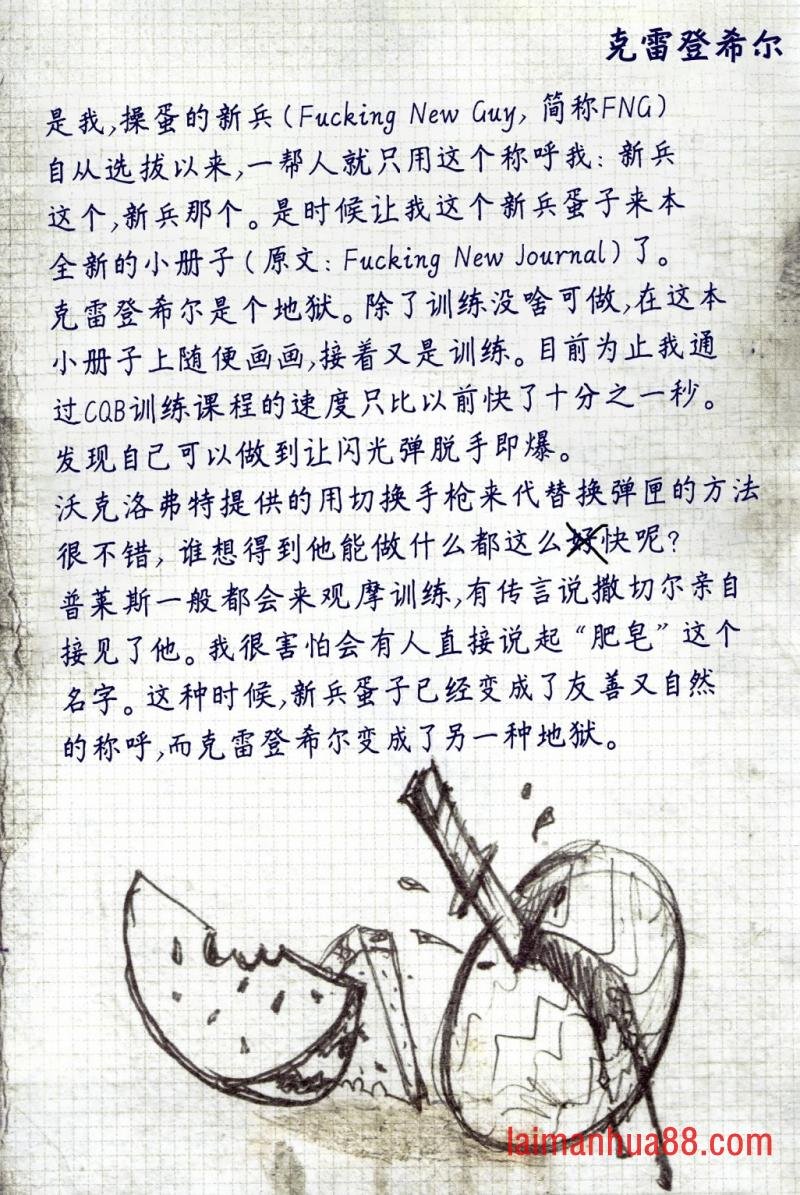 克雷登希尔
是我,操蛋的新兵(Fucking New Guy, 简称FNG)
自从选拔以来,一帮人就只用这个称呼我: 新兵
这个,新兵那个。是时候让我这个新兵蛋子来本
全新的小册子(原文: Fucking New Journal)了。
克雷登希尔是个地狱。除了训练没啥可做,在这本
小册子上随便画画,接着又是训练。目前为止我通
过CQB训练课程的速度只比以前快了十分之一秒。
发现自己可以做到让闪光弹脱手即爆。
沃克洛弗特提供的用切换手枪来代替换弹匣的方法
很不错, 谁想得到他能做什么都这么好快呢?
普莱斯一般都会来观摩训练,有传言说撒切尔亲自
接见了他。我很害怕会有人直接说起“肥皂”这个
名字。这种时候,新兵蛋子已经变成了友善又自然
的称呼,而克雷登希尔变成了另一种地狱。
laimanhua88.com